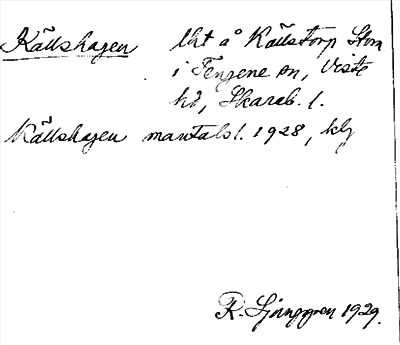 Källshagen lht å Källstorp Stom
i Tengene sn, Viste
hd, Skarab. l.
Källshagen mantalsl. 1928, kly
R. Ljunggren 1929.